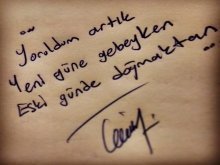 "
Yoruldum artık
Yeni güne gebeyken
Eski günde doğmaktan
"